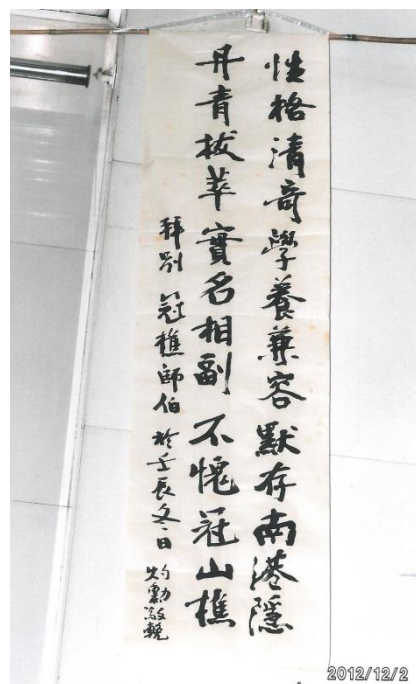 性格清奇學養兼容默存南港隱
丹青拔萃實名相副不愧冠山樵
拜別 冠樵師伯 於壬辰冬日 灼勳敬輓
2012/12/2